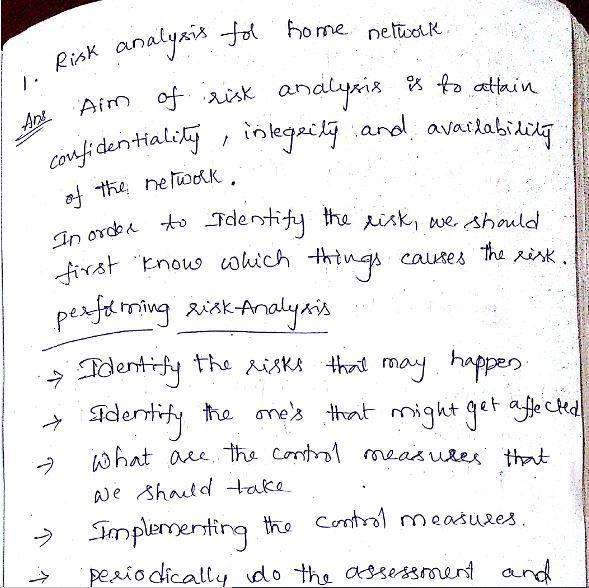 1. Risk analysis for home network
Ans Aim of risk analysis is to attain
confidentiality, integrity and availability
of the network.
In order to Identify the risk, we should
first know which things causes the risk.
performing risk Analysis
→ Identify the risks that may happen
→ Identify the one's that might get affected
→ What are the control measures that
we should take
→ Implementing the control measures.
→ periodically do the assessment and